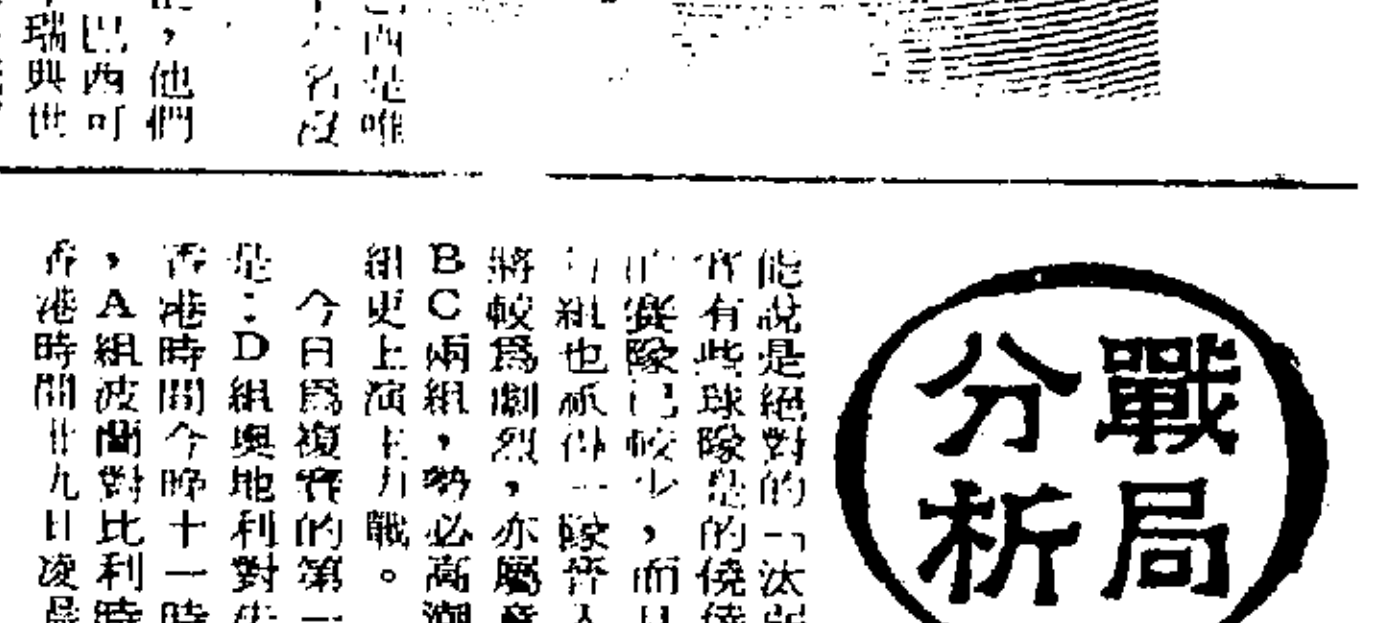 是唯
名段
，他們
巴西可
瑞興世
戰局
分析
能說是絕對的「汰弱
實有些球隊是的僥倖
的賽隊已較少，而且
每組也祇得一隊晉入
將較爲劇烈，亦屬意
BC兩組，勢必高潮
組更上演主力戰。
今日爲複賽的第一
是：D組奧地利對
香港時間今晚十一時
，A組波蘭對比利時
香港時間廿九日凌晨